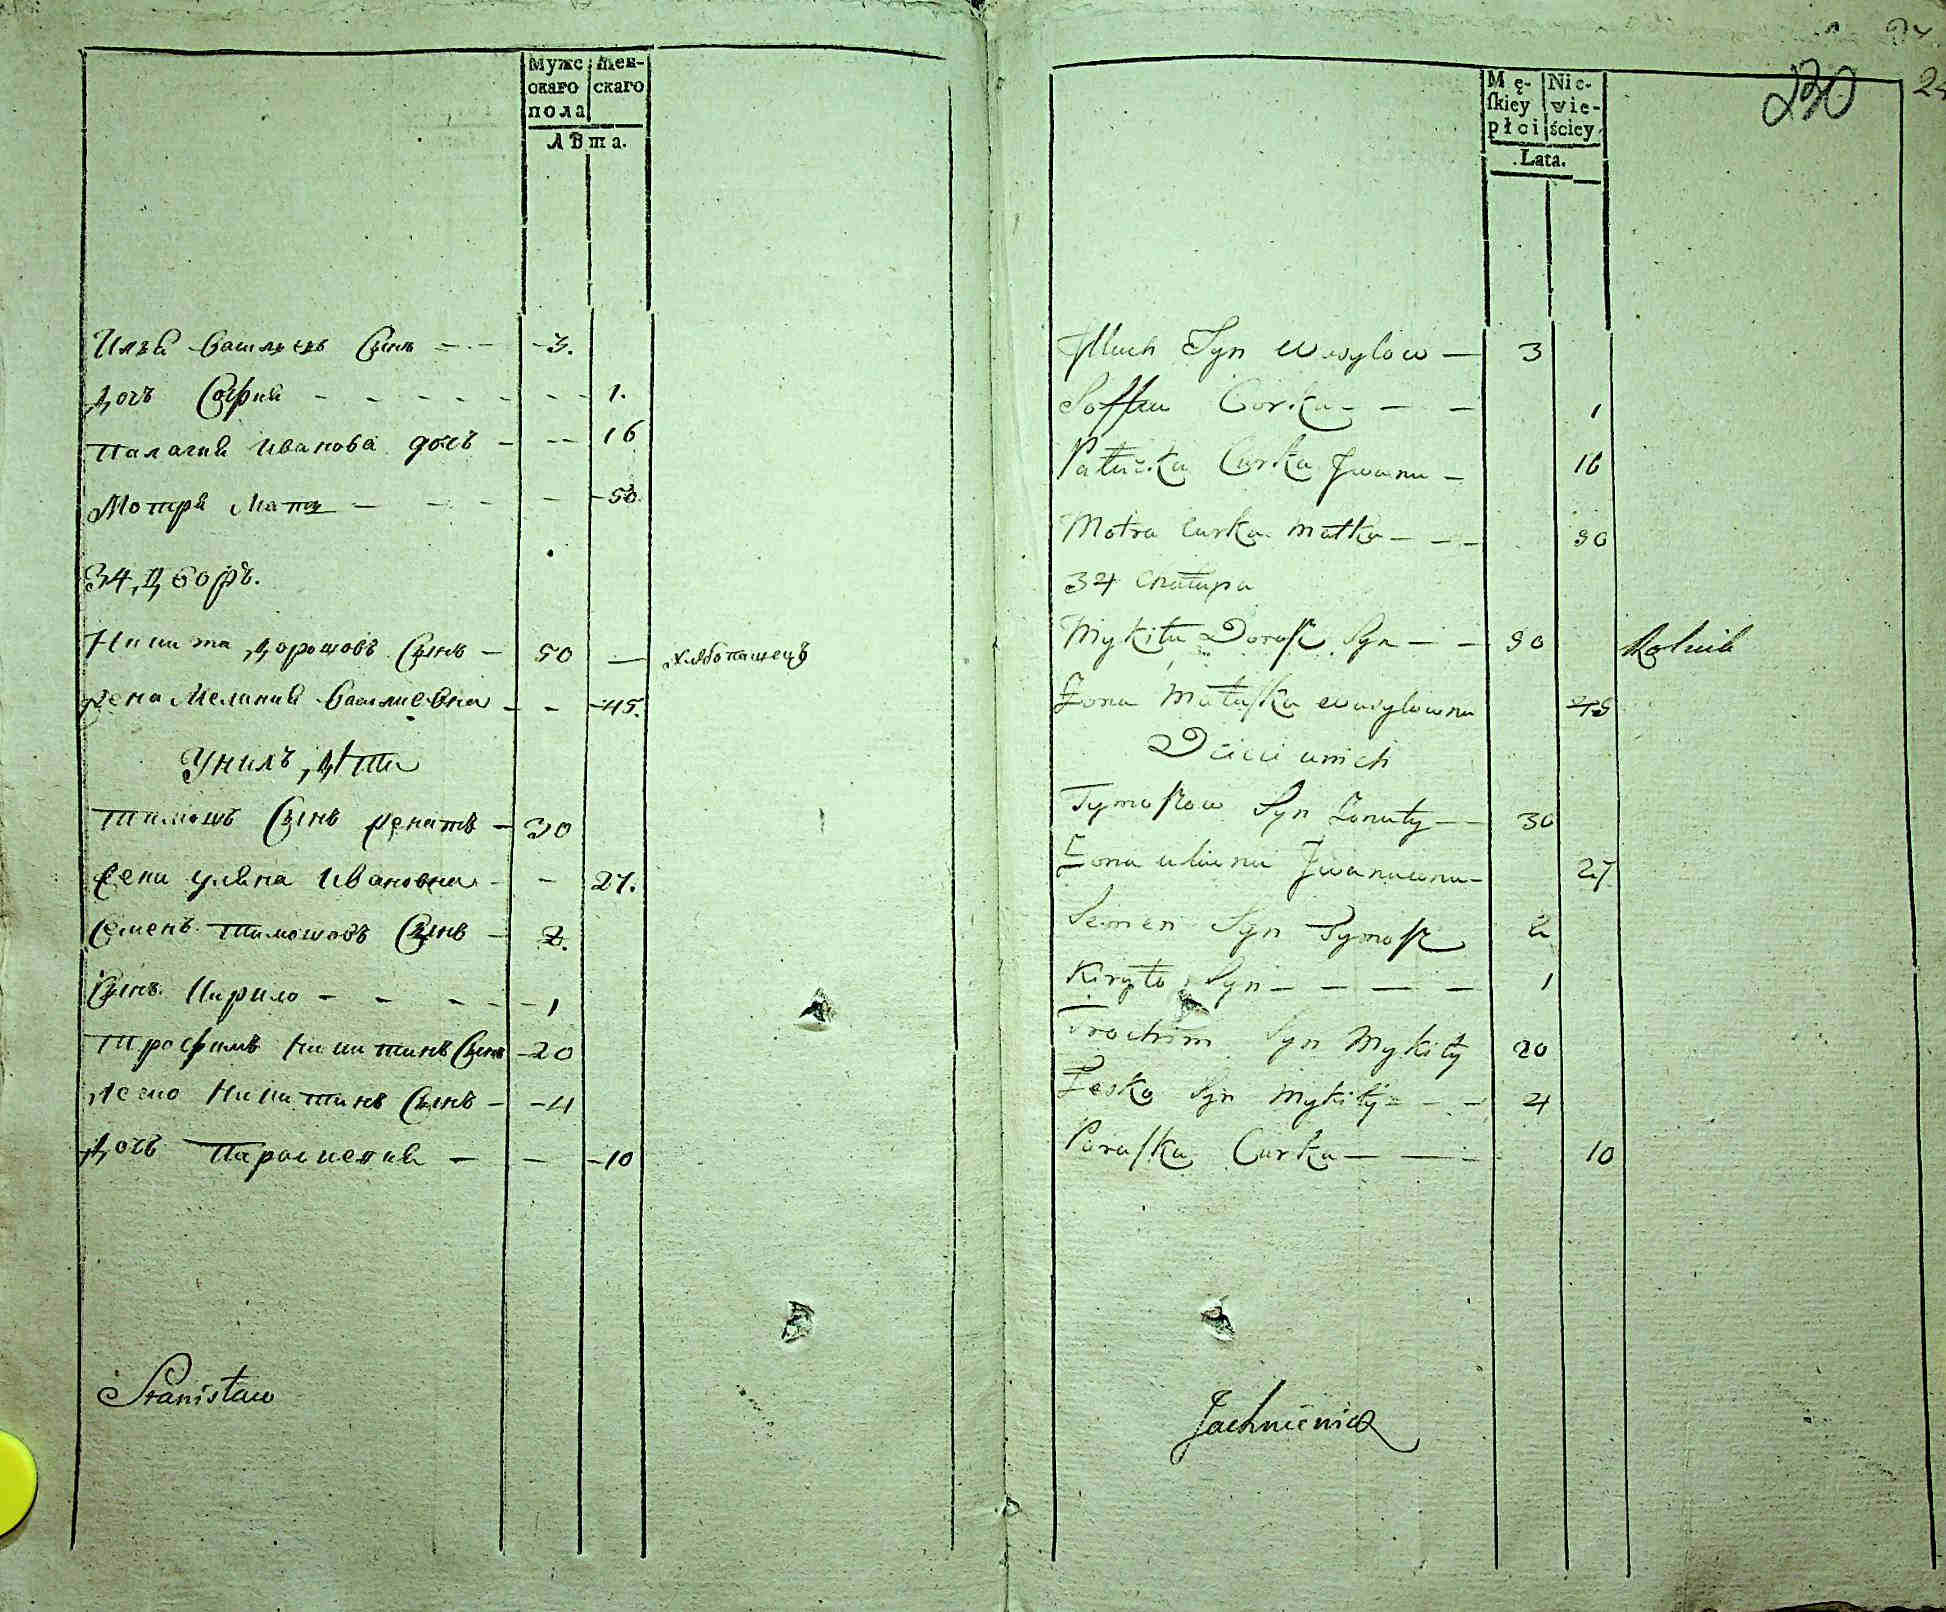 Мужс Жен-
скаго скаго
пола
Лѣта.
Илья васильевъ Сынъ 3.
Дочъ София 1.
Палагия Иванова дочъ 16
Мотря Мать 50.
34, Дворъ.
Никита Дорошовъ Сынъ 50 хлѣбопашецъ
жена Мелания василиевна 45.
У нихъ, Дѣти
Тимошъ Сынъ женатъ 30
жена уляна Ивановна 27.
Семенъ тимошовъ Сынъ 2.
Сынъ Кирило 1
Трофимъ Никитинъ Сынъ 20
Леско Никитинъ Сынъ 4
Дочъ Параскевия 10
Stanisław
230
Mę- Nie-
ſkiey wie-
płci ściey
Lata.
Jlluch Syn Wasylow 3
Soffia Corka 1
Pałazka Curka Jwana 16
Motra Curka matka 50
34 Chałupa
Mykita Doroſz Syn 50 Rolnik
Żona Małaſka wasylowna 45
Dzieci u nich
Tymoſzow Syn Żonaty 30
Żona uliana Jwanowna 27
Semen Syn Tymoſz 2
Kiryło Syn 1
Trochim Syn Mykity 20
Łesko Syn Mykity 4
Paraſka Curka 10
Jachniewicz